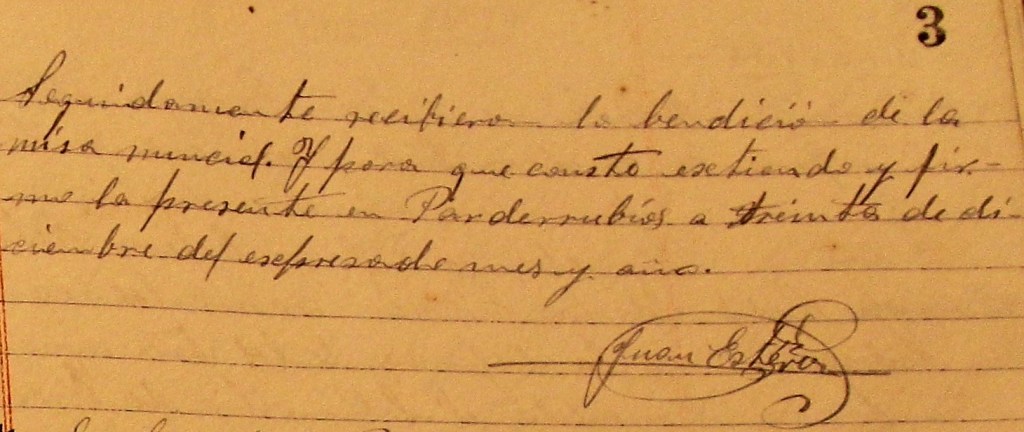 3
Seguidamente recibieron la bendición de la
misa nuncial. Y para que conste extiendo y fir-
mo la presente en Parderrubios a treinta de di-
ciembre del expresado mes y año.
Juan Estévez